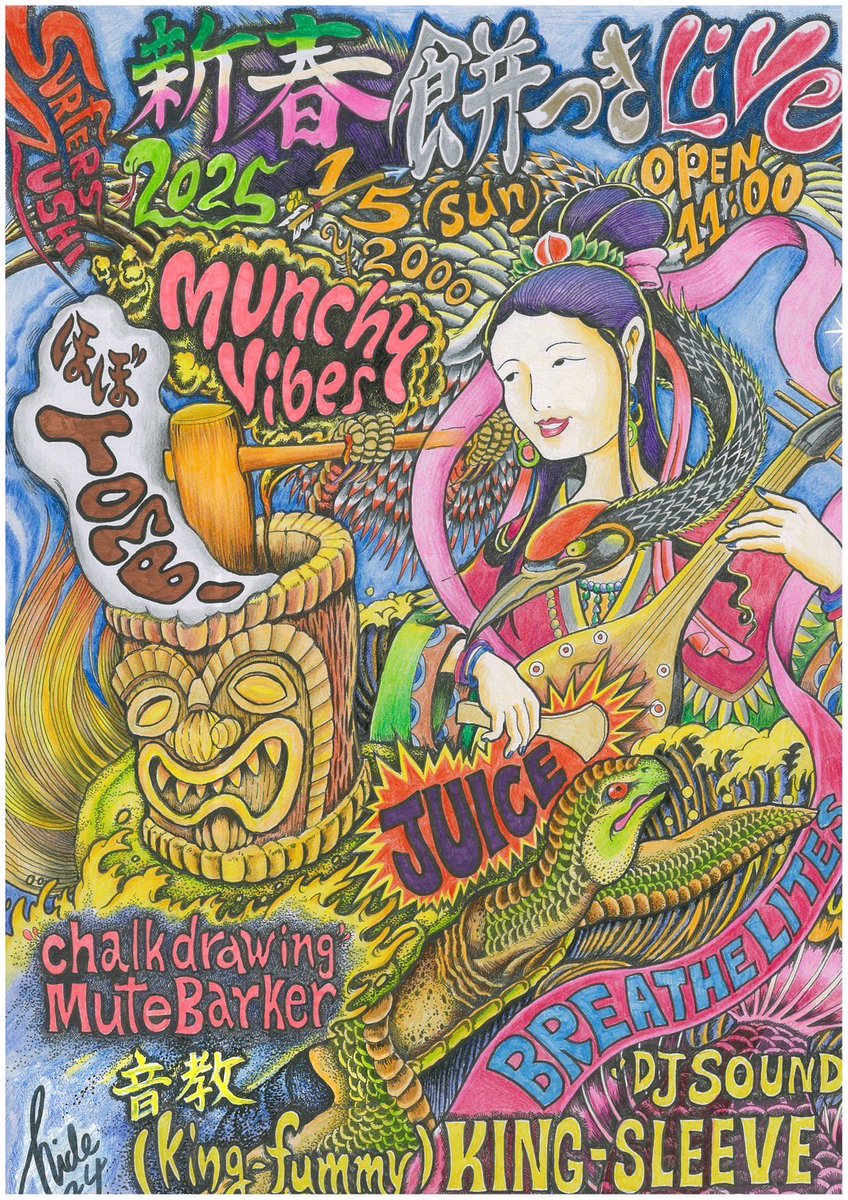 SURFERS
ZUSHI
新春餅つきLIVE
2025 1/5 (sun)
OPEN
11:00
¥2000
Munchy
Vibes
ほぼ
JUICE
"chalkdrawing"
MuteBarker
BREATHE LITES
音教
(king-fummy)
"DJ SOUND
KING-SLEEVE
hide
24